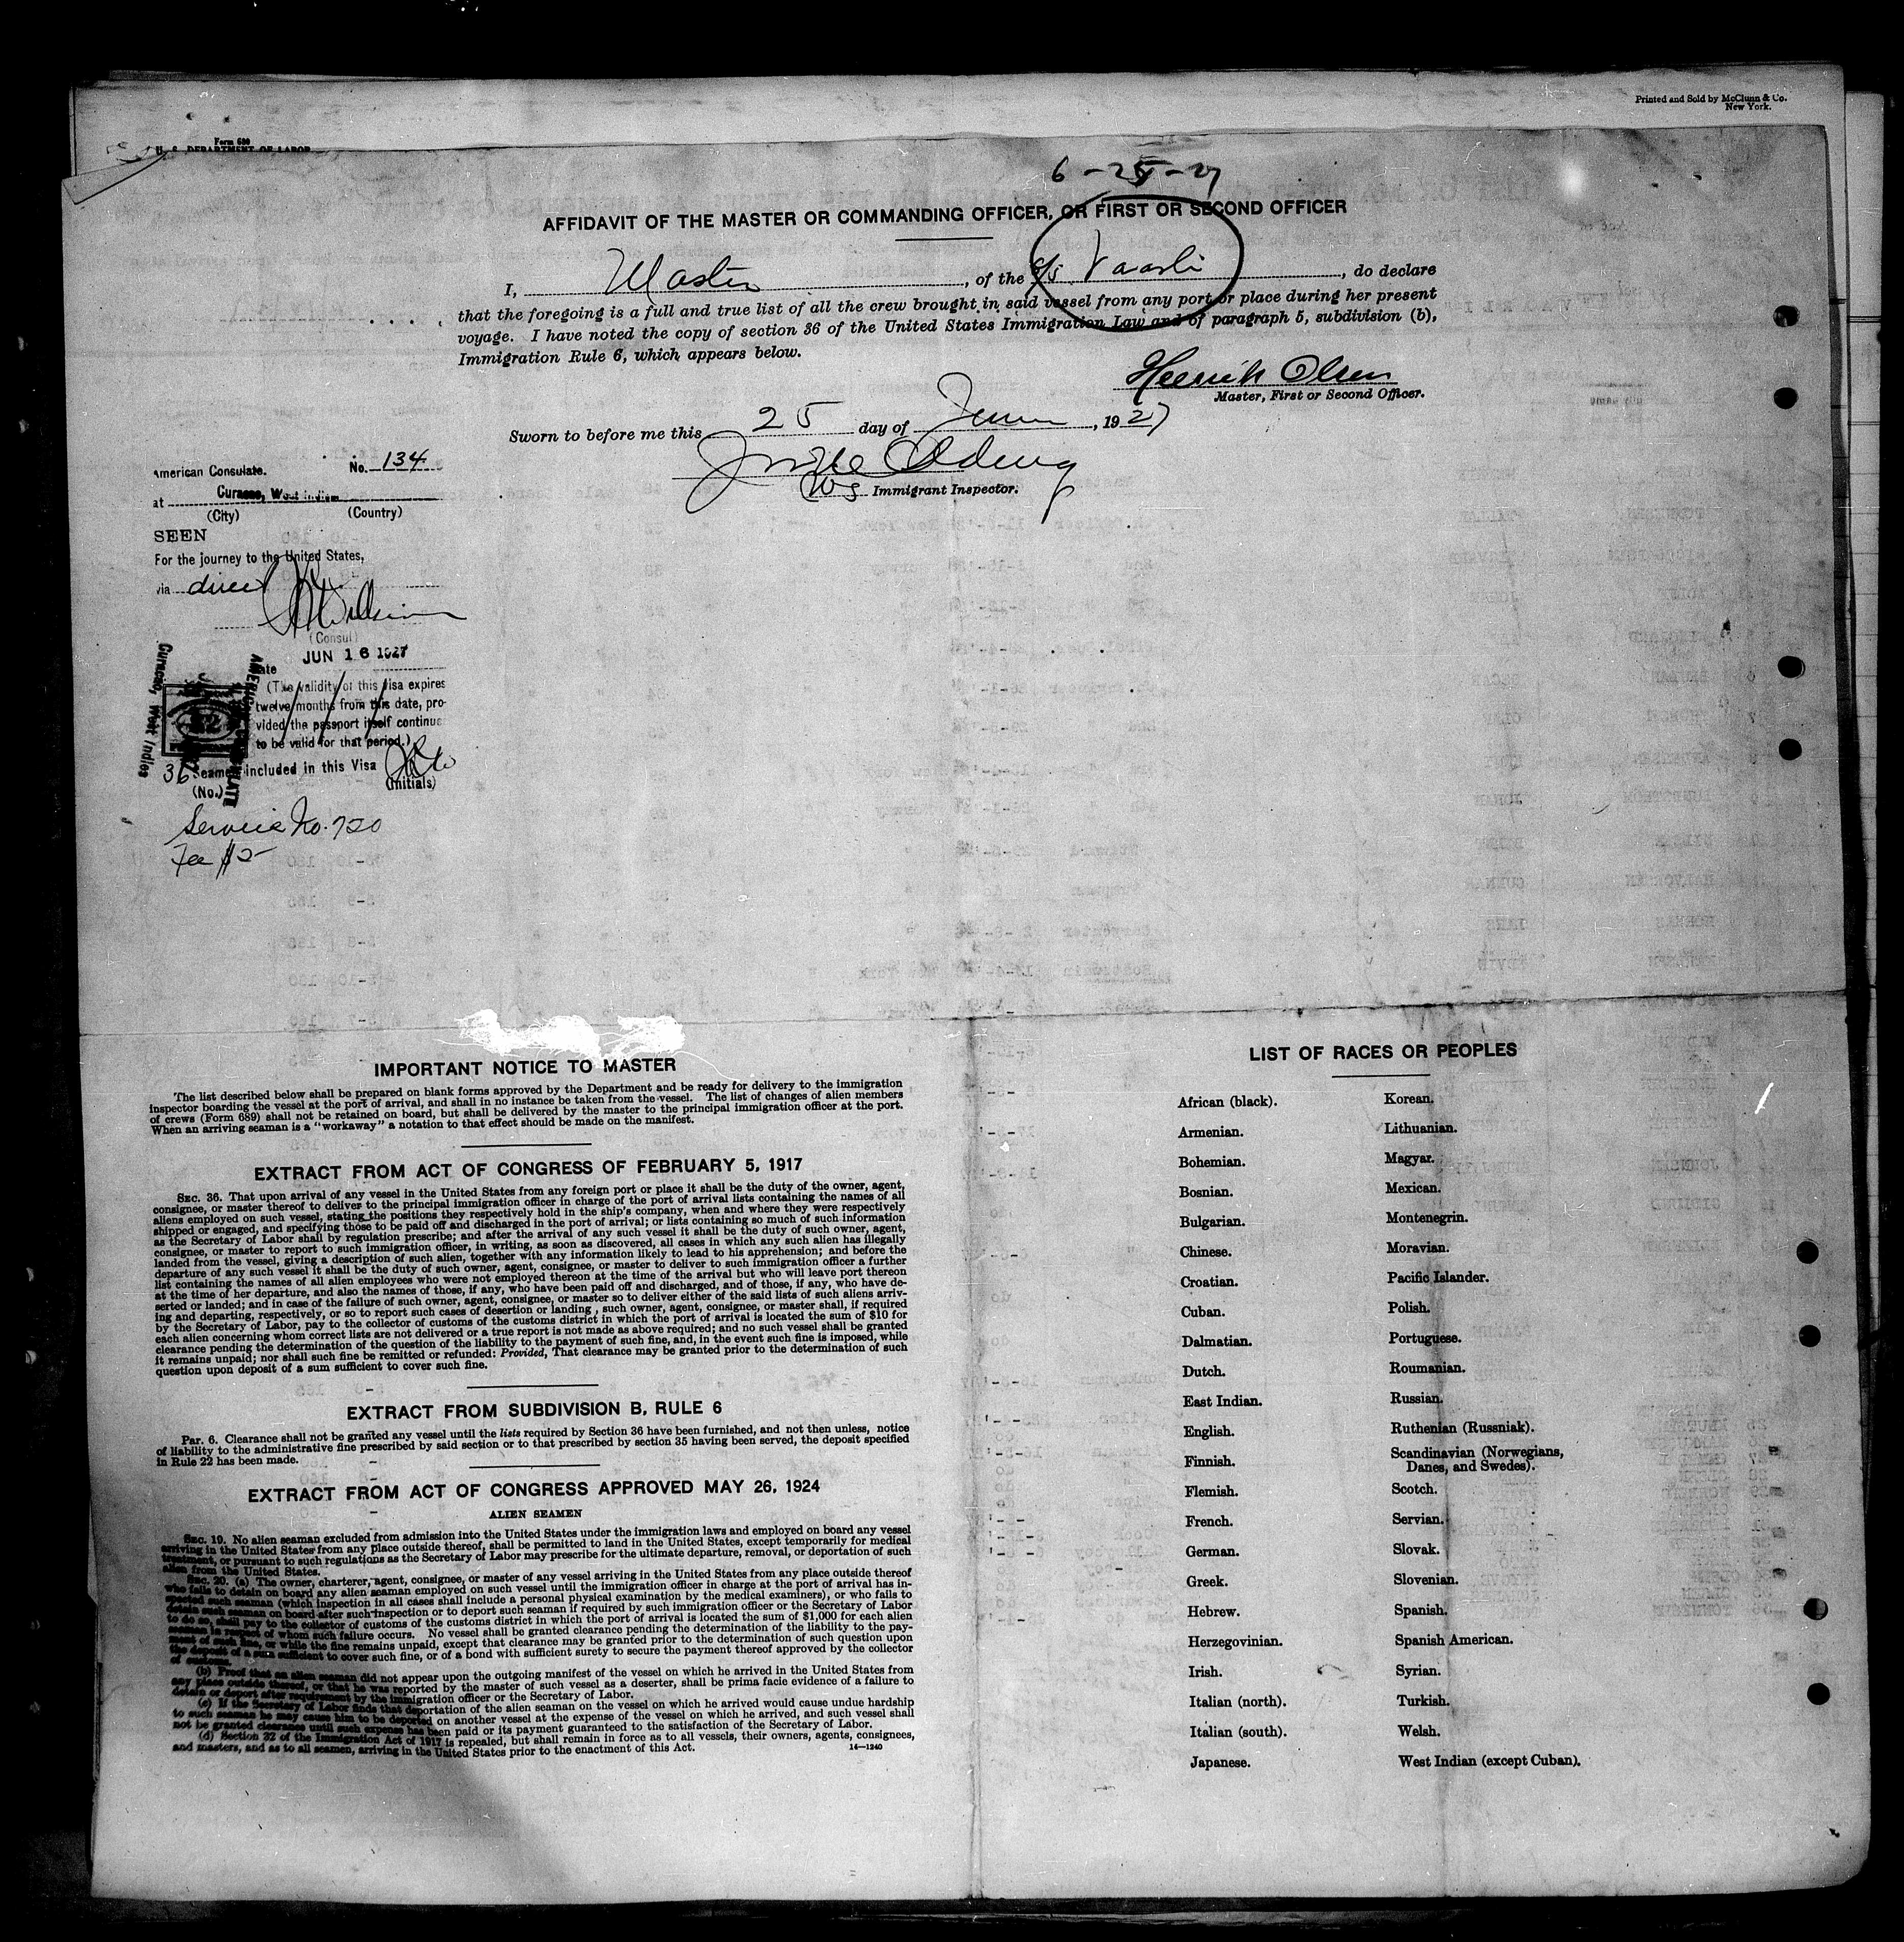 Printed and Sold by McClunn & Co.
New York.
Form 680
U. S. DEPARTMENT OF LABOR
6-25-27
AFFIDAVIT OF THE MASTER OR COMMANDING OFFICER, OR FIRST OR SECOND OFFICER
I, Master, of the S/S Vaarli, do declare
that the foregoing is a full and true list of all the crew brought in said vessel from any port or place during her present
voyage. I have noted the copy of section 36 of the United States Immigration Law and of paragraph 5, subdivision (b),
Immigration Rule 6, which appears below.
Henrik Olsen
Master, First or Second Officer.
Sworn to before me this 25 day of June, 1927
Immigrant Inspector.
American Consulate. No. 134
at Curacao, West Indies
(City) (Country)
SEEN
For the journey to the United States,
via direct
(Consul)
JUN 16 1927
Date
(The validity of this visa expires
twelve months from this date, pro-
vided the passport itself continues
to be valid for that period.)
36 Seamen included in this Visa
(No.) (Initials)
AMERICAN CONSULATE
Curacao, West Indies
Service No. 720
Fee $2-
IMPORTANT NOTICE TO MASTER
The list described below shall be prepared on blank forms approved by the Department and be ready for delivery to the immigration
inspector boarding the vessel at the port of arrival, and shall in no instance be taken from the vessel. The list of changes of alien members
of crews (Form 689) shall not be retained on board, but shall be delivered by the master to the principal immigration officer at the port.
When an arriving seaman is a "workaway" a notation to that effect should be made on the manifest.
EXTRACT FROM ACT OF CONGRESS OF FEBRUARY 5, 1917
SEC. 36. That upon arrival of any vessel in the United States from any foreign port or place it shall be the duty of the owner, agent,
consignee, or master thereof to deliver to the principal immigration officer in charge of the port of arrival lists containing the names of all
aliens employed on such vessel, stating the positions they respectively hold in the ship's company, when and where they were respectively
shipped or engaged, and specifying those to be paid off and discharged in the port of arrival; or lists containing so much of such information
as the Secretary of Labor shall by regulation prescribe; and after the arrival of any such vessel it shall be the duty of such owner, agent,
consignee, or master to report to such immigration officer, in writing, as soon as discovered, all cases in which any such alien has illegally
landed from the vessel, giving a description of such alien, together with any information likely to lead to his apprehension; and before the
departure of any such vessel it shall be the duty of such owner, agent, consignee, or master to deliver to such immigration officer a further
list containing the names of all alien employees who were not employed thereon at the time of the arrival but who will leave port thereon
at the time of her departure, and also the names of those, if any, who have been paid off and discharged, and of those, if any, who have de-
serted or landed; and in case of the failure of such owner, agent, consignee, or master so to deliver either of the said lists of such aliens arriv-
ing and departing, respectively, or so to report such cases of desertion or landing, such owner, agent, consignee, or master shall, if required
by the Secretary of Labor, pay to the collector of customs of the customs district in which the port of arrival is located the sum of $10 for
each alien concerning whom correct lists are not delivered or a true report is not made as above required; and no such vessel shall be granted
clearance pending the determination of the question of the liability to the payment of such fine, and, in the event such fine is imposed, while
it remains unpaid; nor shall such fine be remitted or refunded: Provided, That clearance may be granted prior to the determination of such
question upon deposit of a sum sufficient to cover such fine.
EXTRACT FROM SUBDIVISION B, RULE 6
Par. 6. Clearance shall not be granted any vessel until the lists required by Section 36 have been furnished, and not then unless, notice
of liability to the administrative fine prescribed by said section or to that prescribed by section 35 having been served, the deposit specified
in Rule 22 has been made.
EXTRACT FROM ACT OF CONGRESS APPROVED MAY 26, 1924
ALIEN SEAMEN
SEC. 19. No alien seaman excluded from admission into the United States under the immigration laws and employed on board any vessel
arriving in the United States from any place outside thereof, shall be permitted to land in the United States, except temporarily for medical
treatment, or pursuant to such regulations as the Secretary of Labor may prescribe for the ultimate departure, removal, or deportation of such
alien from the United States.
SEC. 20. (a) The owner, charterer, agent, consignee, or master of any vessel arriving in the United States from any place outside thereof
who fails to detain on board any alien seaman employed on such vessel until the immigration officer in charge at the port of arrival has in-
spected such seaman (which inspection in all cases shall include a personal physical examination by the medical examiners), or who fails to
detain such seaman on board after such inspection or to deport such seaman if required by such immigration officer or the Secretary of Labor
to do so, shall pay to the collector of customs of the customs district in which the port of arrival is located the sum of $1,000 for each alien
seaman in respect of whom such failure occurs. No vessel shall be granted clearance pending the determination of the liability to the pay-
ment of such fine, or while the fine remains unpaid, except that clearance may be granted prior to the determination of such question upon
the deposit of a sum sufficient to cover such fine, or of a bond with sufficient surety to secure the payment thereof approved by the collector
of customs.
(b) Proof that an alien seaman did not appear upon the outgoing manifest of the vessel on which he arrived in the United States from
any place outside thereof, or that he was reported by the master of such vessel as a deserter, shall be prima facie evidence of a failure to
detain or deport after requirement by the immigration officer or the Secretary of Labor.
(c) If the Secretary of Labor finds that deportation of the alien seaman on the vessel on which he arrived would cause undue hardship
to such seaman he may cause him to be deported on another vessel at the expense of the vessel on which he arrived, and such vessel shall
not be granted clearance until such expense has been paid or its payment guaranteed to the satisfaction of the Secretary of Labor.
(d) Section 32 of the Immigration Act of 1917 is repealed, but shall remain in force as to all vessels, their owners, agents, consignees,
and masters, and as to all seamen, arriving in the United States prior to the enactment of this Act.
14—1240
LIST OF RACES OR PEOPLES
African (black).
Armenian.
Bohemian.
Bosnian.
Bulgarian.
Chinese.
Croatian.
Cuban.
Dalmatian.
Dutch.
East Indian.
English.
Finnish.
Flemish.
French.
German.
Greek.
Hebrew.
Herzegovinian.
Irish.
Italian (north).
Italian (south).
Japanese.
Korean.
Lithuanian.
Magyar.
Mexican.
Montenegrin.
Moravian.
Pacific Islander.
Polish.
Portuguese.
Roumanian.
Russian.
Ruthenian (Russniak).
Scandinavian (Norwegians,
Danes, and Swedes).
Scotch.
Servian.
Slovak.
Slovenian.
Spanish.
Spanish American.
Syrian.
Turkish.
Welsh.
West Indian (except Cuban).